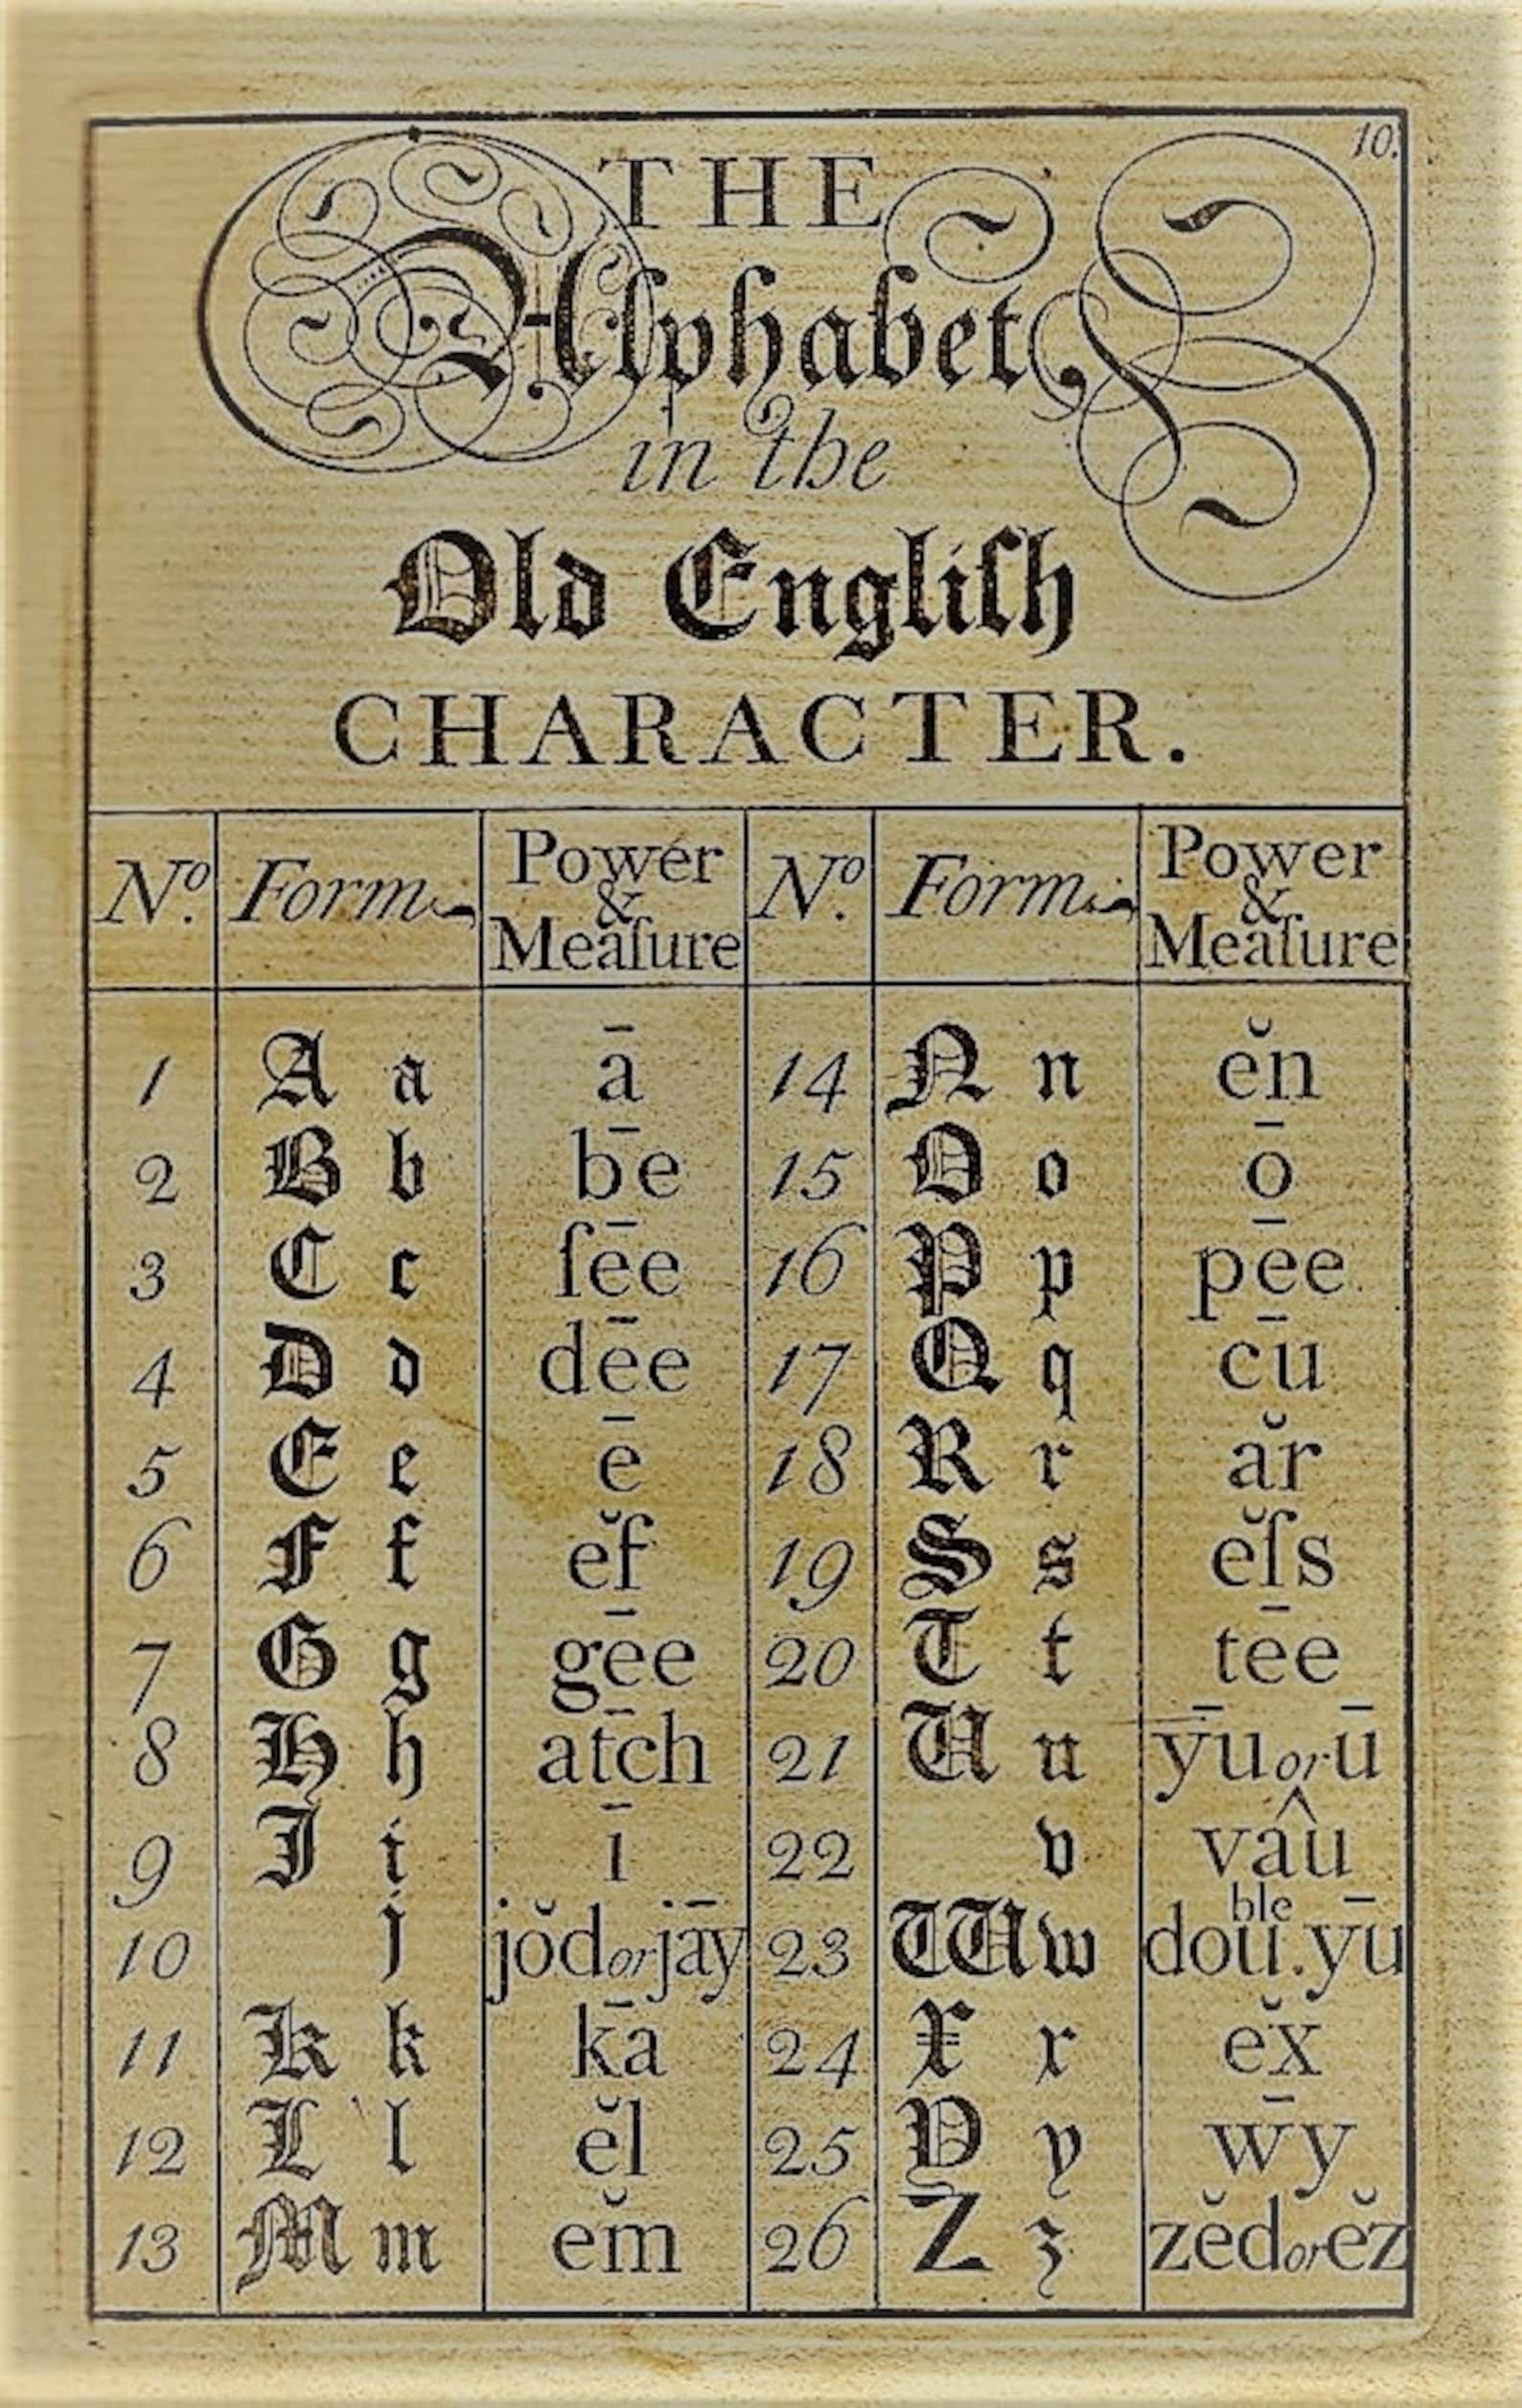 10.
THE
Alphabet,
in the
Old Engliſh
CHARACTER.
Nº. Form Power & Meaſure Nº. Form Power & Meaſure
1 A a ā 14 N n ĕn
2 B b bē 15 O o ō
3 C c ſēe 16 P p pēe
4 D d dēe 17 Q q cū
5 E e ē 18 R r ăr
6 F f ĕf 19 S s ĕſs
7 G g gēe 20 T t tēe
8 H h ātch 21 U u yūorū
9 I i ī 22 v vâu
10 j jŏdorjāy 23 W w double.yū
11 K k kā 24 X x ĕx
12 L l ĕl 25 Y y wȳ
13 M m ĕm 26 Z z zĕdorĕz